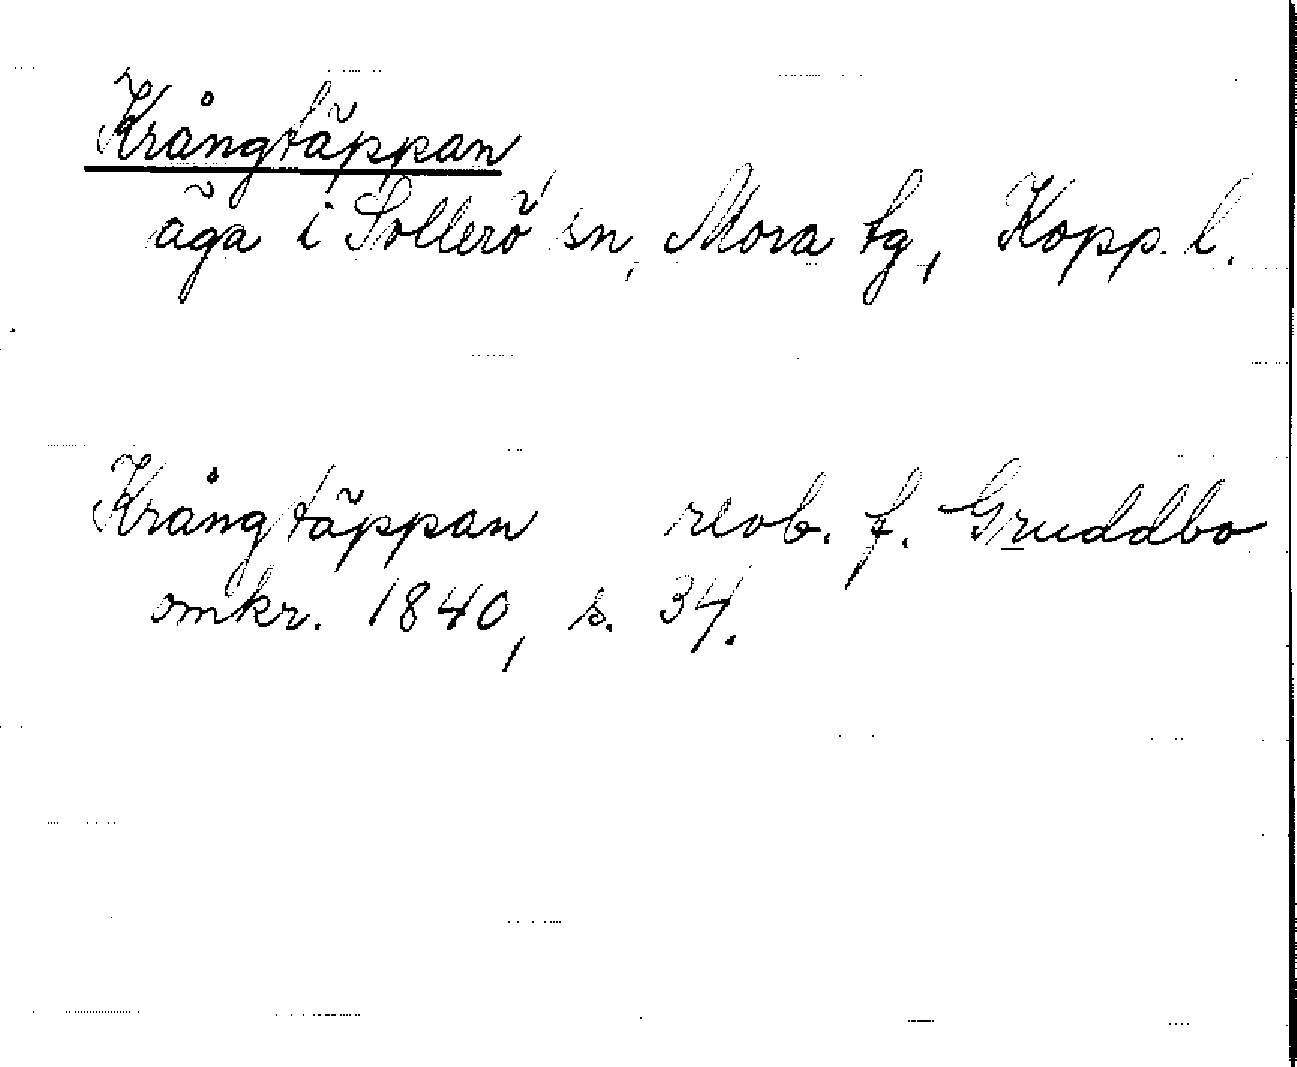 Krångtäppan
äga i Sollerö sn, Mora tg, Kopp. l.
Krångtäppan revb. f. Gruddbo
omkr. 1840, s. 34.